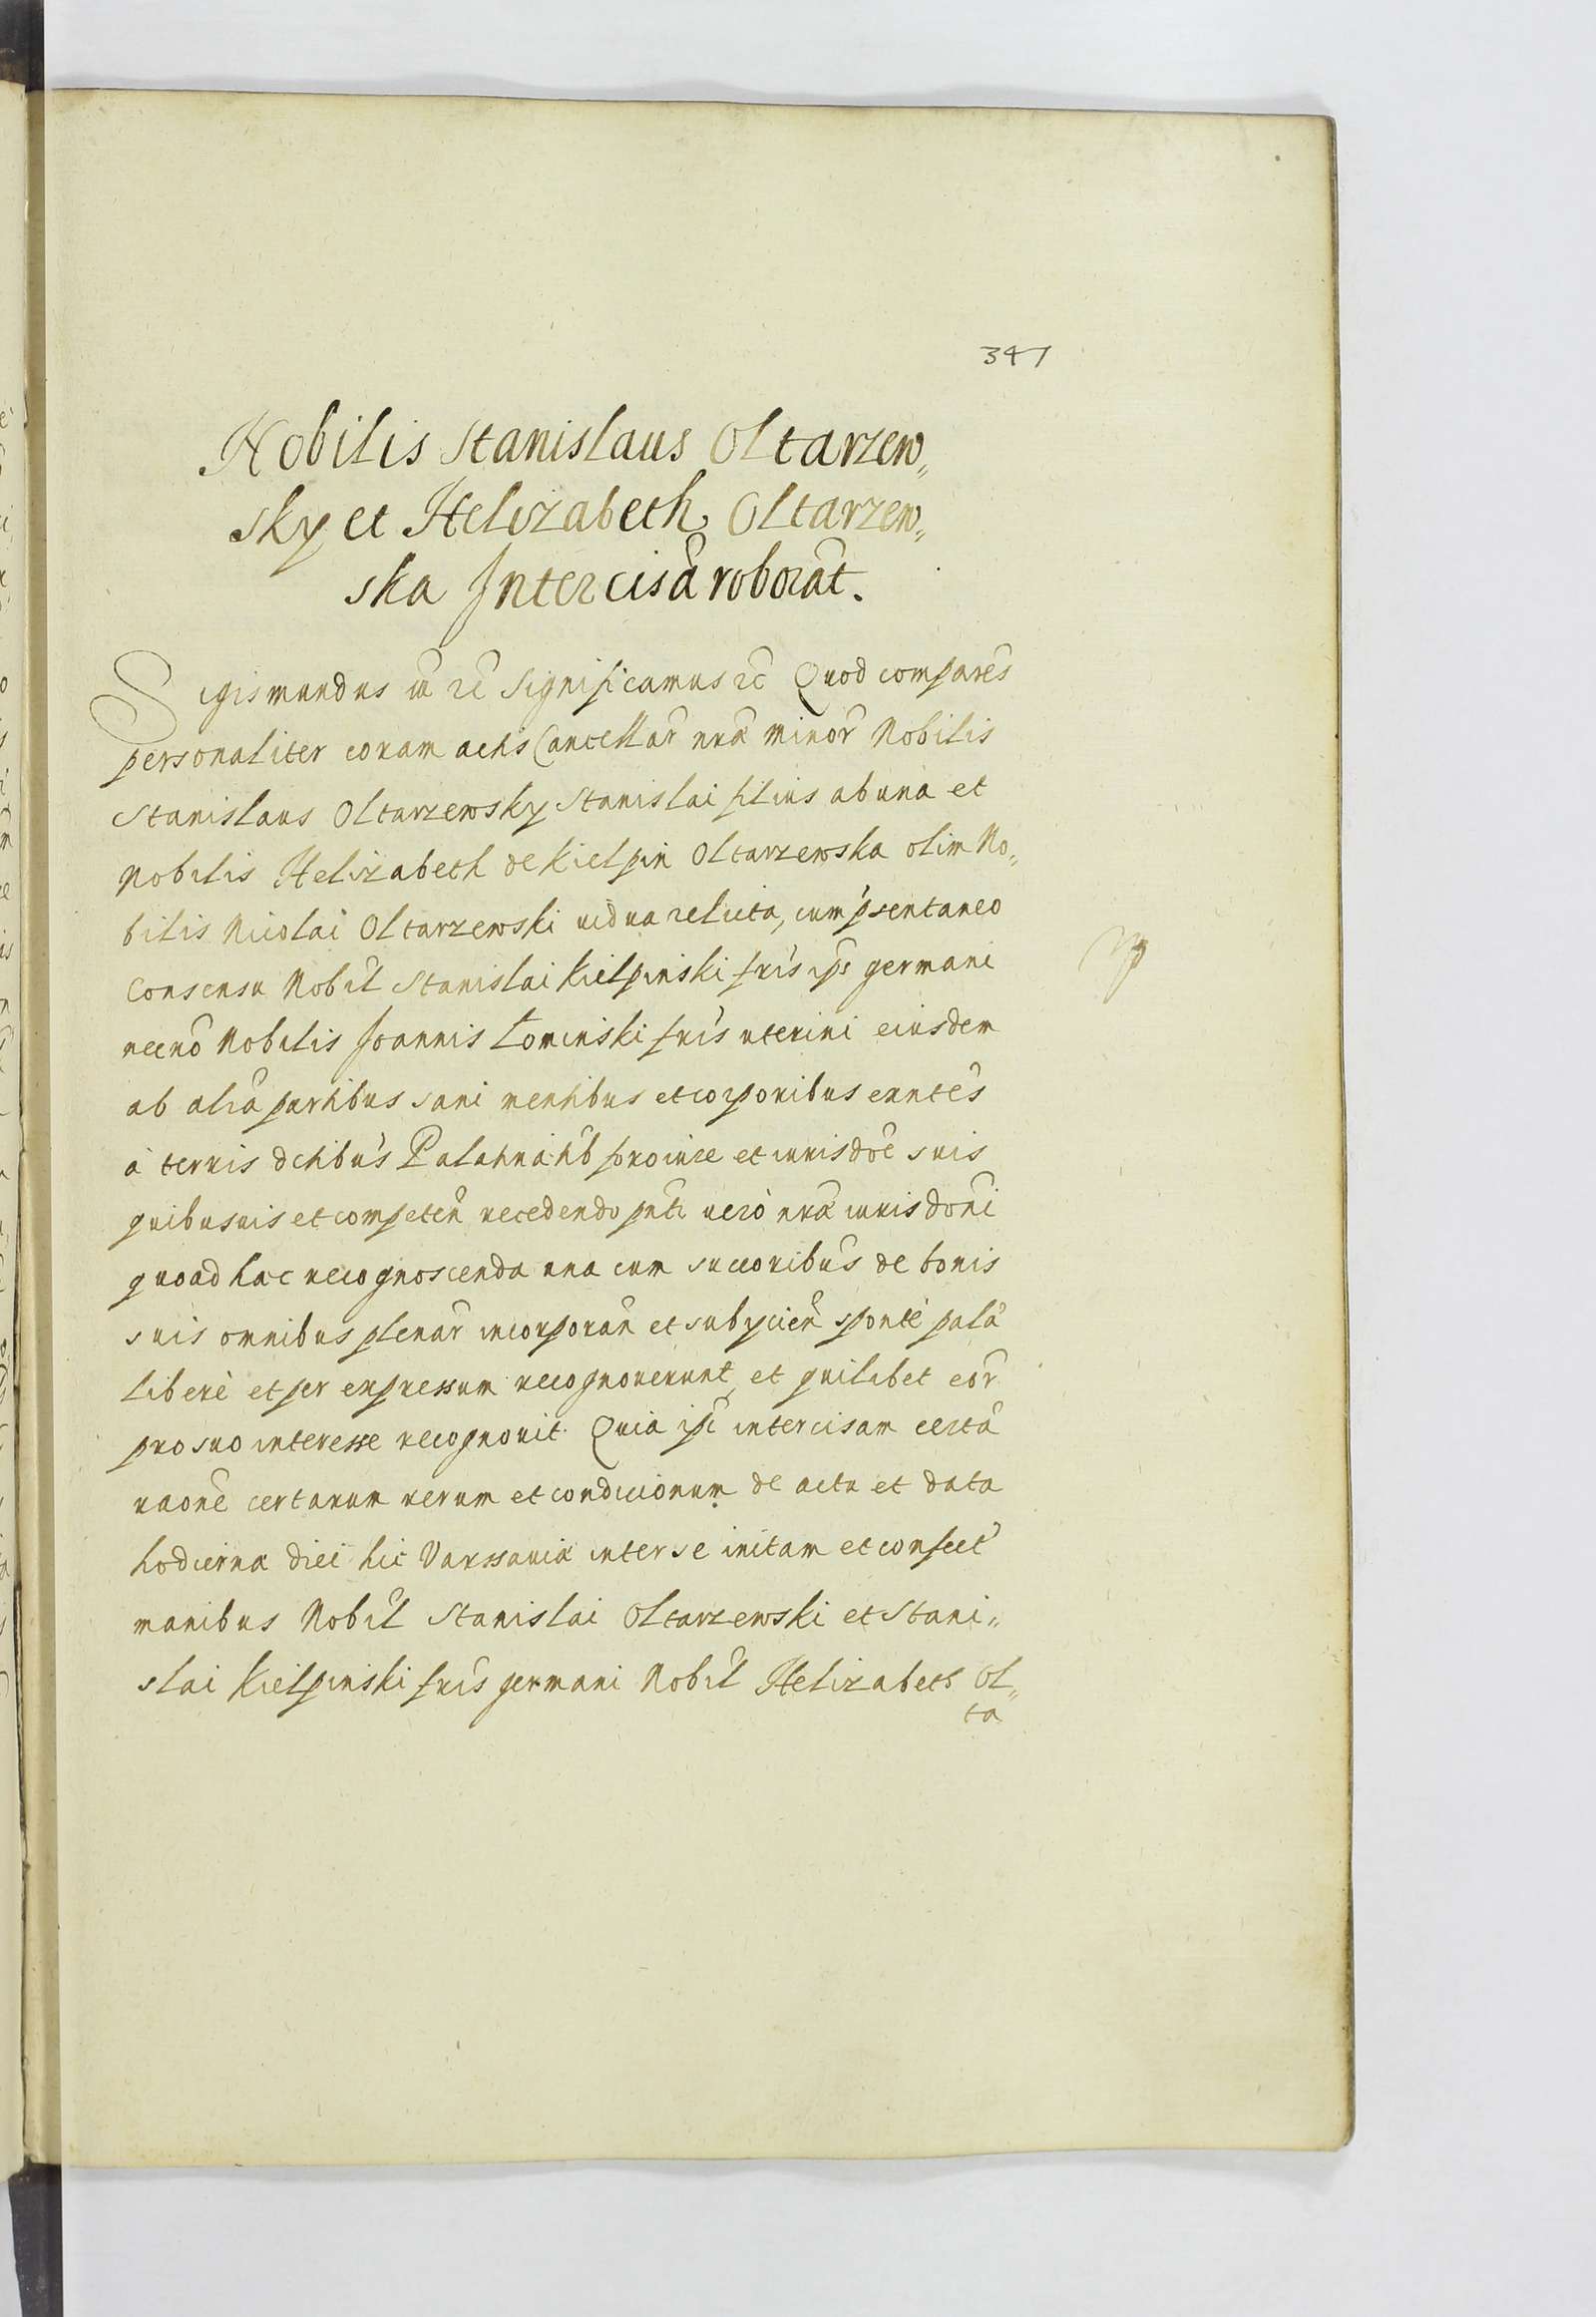 347
Nobilis Stanislaus Oltarzew„
sky et Helizabeth Oltarzew„
ska Intercisã roborãt.
Sigismundus iii &c̃ Significamus &c̃ Quod comparẽs
personaliter coram actis Cancellar̃ nrã minor̃ Nobilis
Stanislaus Oltarzewsky Stanislai filius ab una et
Nobilis Helizabeth de Kielpin Oltarzewska olim No„
bilis Nicolai Oltarzewski uidua relicta, cum p̃sentaneo
Consensu Nobil̃ Stanislai Kielpinski fris̃ ips̃ germani
necnõ Nobilis Joannis Łominski fris̃ uterini eiusdem
ab aliã partibus sani mentibus et corporibus exñtes
à terris dctibus̃ Palatinatib̃ et iurisdoẽ suis
quibusuis et competeñ recedendo pñti uerò nrã iurisdoñi
quoad hac recognoscenda una cum succoribus̃ de bonis
suis omnibus plenar̃ incorporañ et subycieñ spontè palã
liberè et per expressum recognouerunt, et quilibet eor̃
pro suo interesse recognouit. Quia ipsĩ intercisam certã
raonẽ certarum rerum et condicionum de actu et data
hodierna diei hic Varssauiæ inter se initam et confect̃
manibus Nobil̃ Stanislai Oltarzewski et Stani„
slai Kielpinski fris̃ germani Nobil̃ Helizabeth Ol„
ta